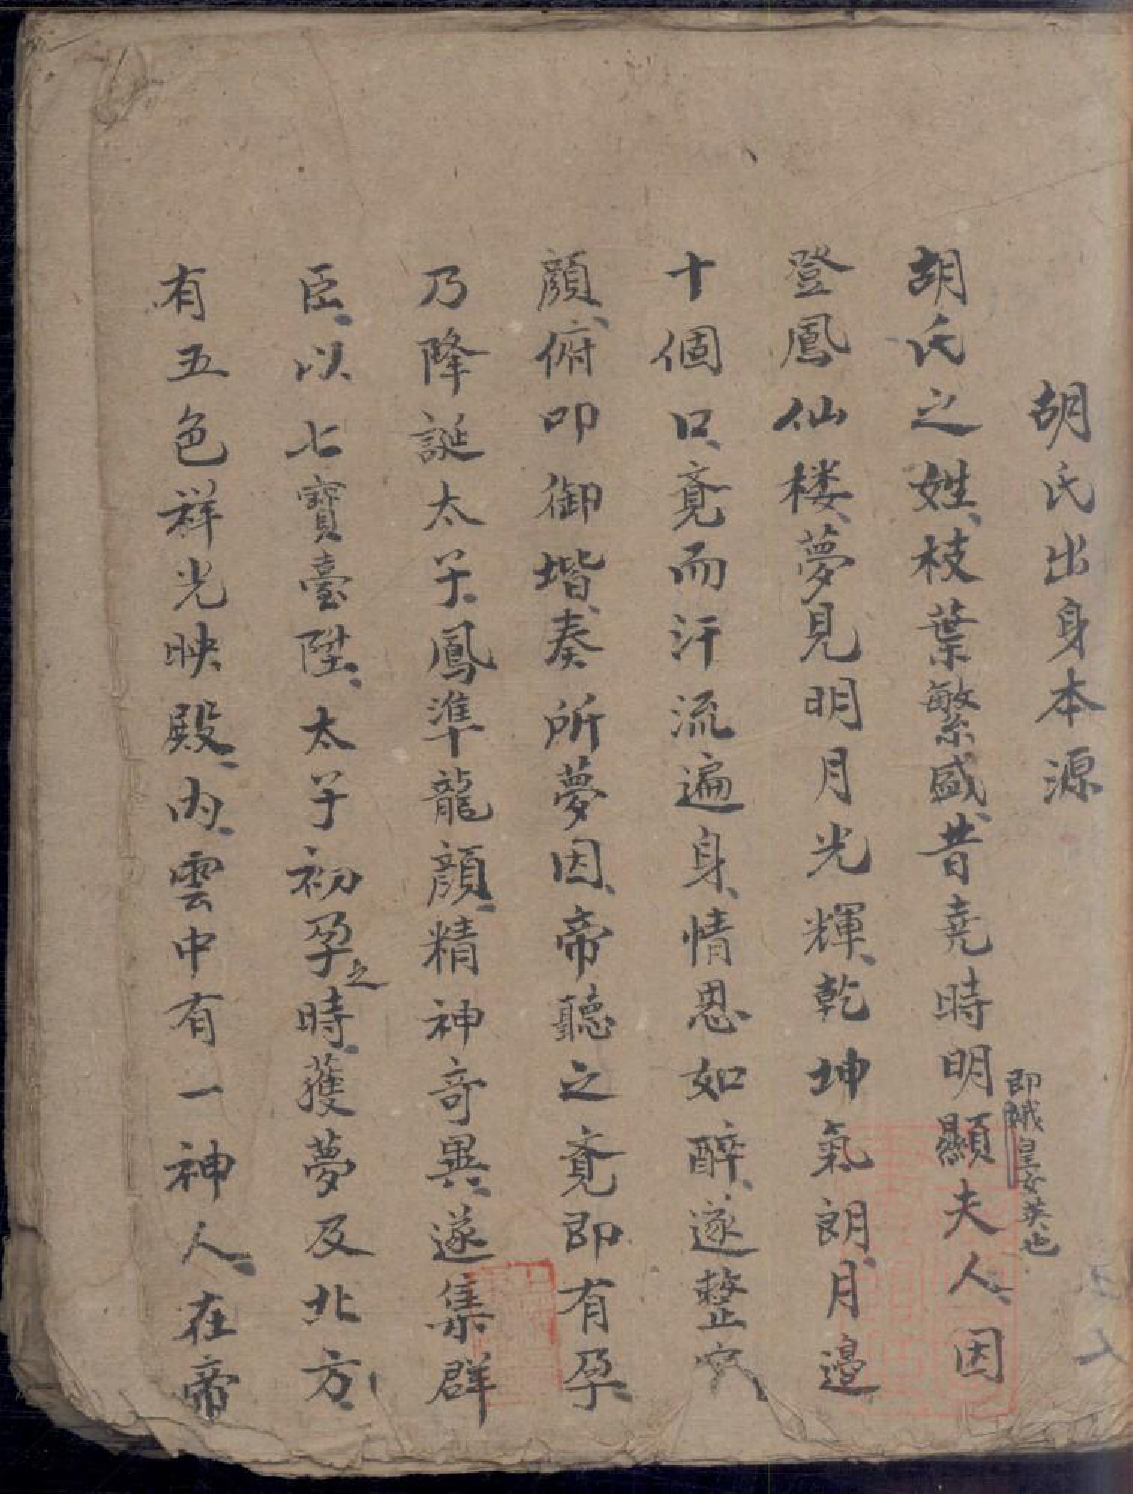 胡氏出身本源
胡氏之姓、枝葉繁盛、昔堯時明顯夫人、因
即娥皇女英也
登鳳仙楼、夢見明月光輝、乾坤氣朗、月邉
十個口、覔而汗流遍身、情思如醉、遂整
顔、俯叩御堦、奏所夢因、帝聽之覔即有孕、
乃降誕太子、鳳準龍顔、精神竒異、遂集群
臣、以七寳臺陞、太子初孕之時、獲夢及北方、
有五色祥光映殿、内、雲中有一神人、在帝